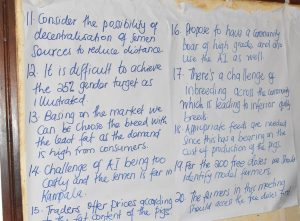 11. Consider the possibility of
decentralisation of semen
sources to reduce distance
12. It is difficult to achieve
the 25% gender target as
illustrated
13. Basing on the market we
can be choose the breed with
the least fat as the demand
is high from consumers.
14. Challenge of AI being too
Costly and the semen is far in
Kampala.
15. Traders offer prices according
to the fat content of the pigs.
16. Propose to have a community
boar of high grade and also
use the AI as well.
17. There's a challenge of
inbreeding across the community
which is leading to inferior quality
breeds
18. Appropriate feeds are needed
since this had a bearing on the
cost of production of the pigs.
19. For the 800 free doses we should
Identify model farmers.
20. The farmers in this meeting
Should access the free doses